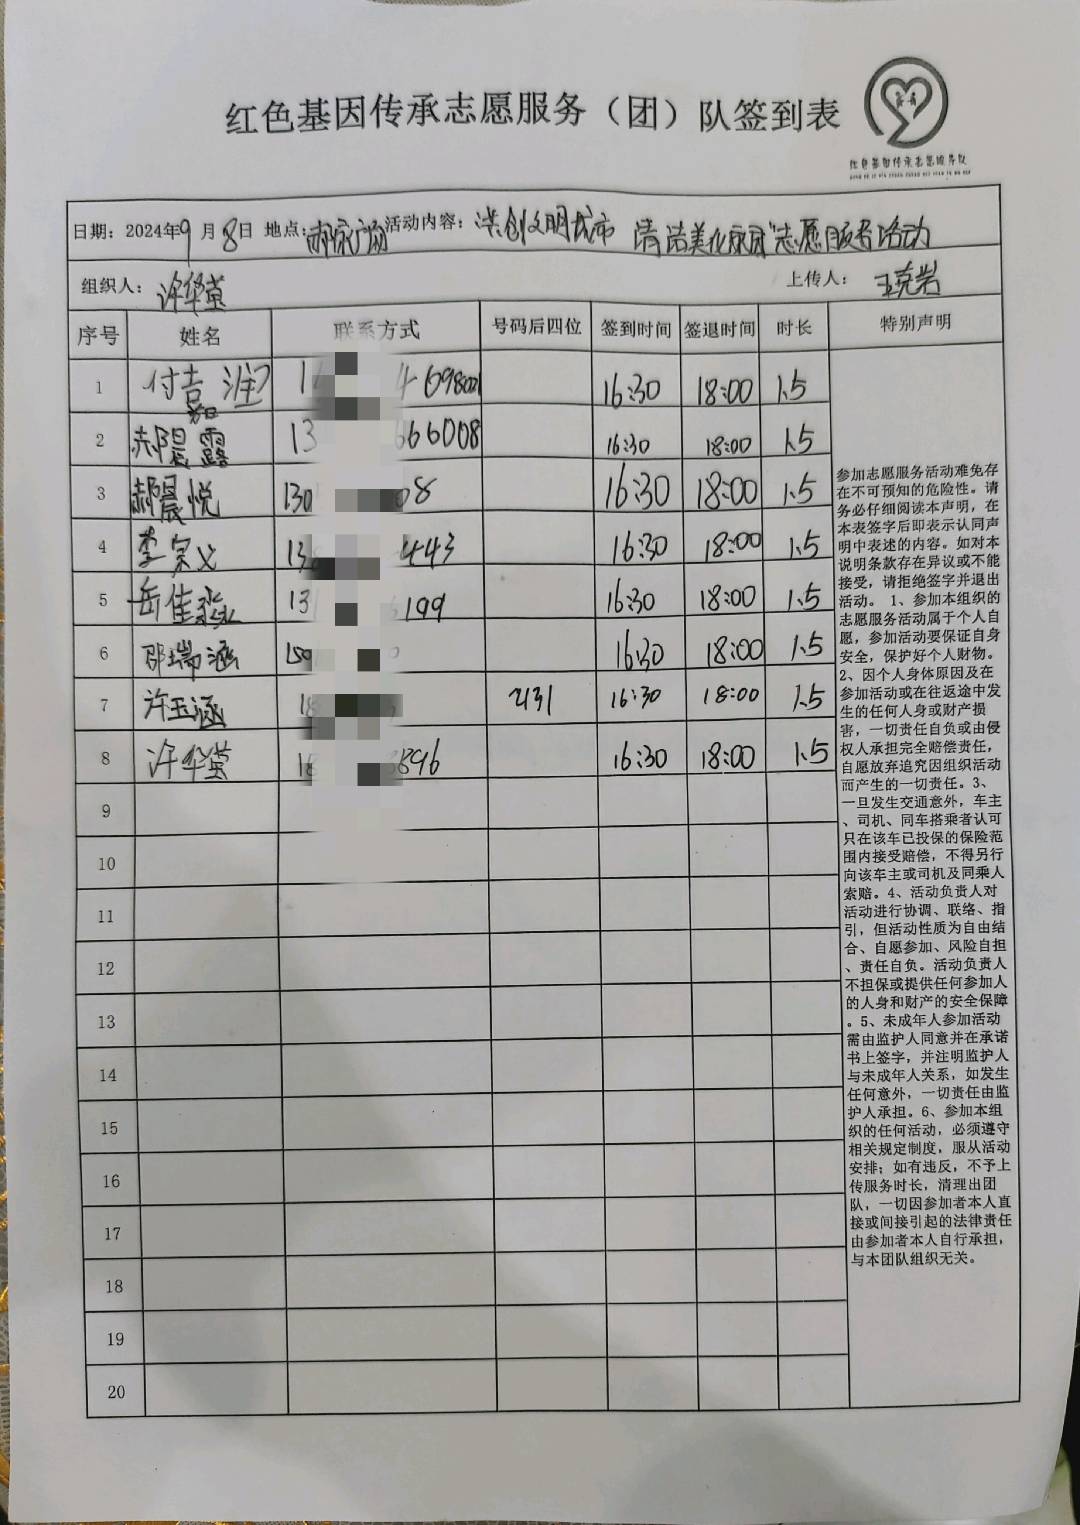 红色基因传承志愿服务（团）队签到表
红色基因传承志愿服务队
日期：2024年9月8日 地点：郝家广场 活动内容：共创文明城市 清洁美化家园"志愿服务活动
组织人：许华萱 上传人：王克岩
序号 姓名 联系方式 号码后四位 签到时间 签退时间 时长 特别声明
1 付吉润 1 4698001 16:30 18:00 1.5
2 郝晨露 13 666008 16:30 18:00 1.5
3 郝晨悦 130 08 16:30 18:00 1.5
4 李宗义 13 443 16:30 18:00 1.5
5 岳佳淼 13 199 16:30 18:00 1.5
6 邵瑞涵 16:30 18:00 1.5
7 许玉涵 18 2131 16:30 18:00 1.5
8 许华萱 18 8896 16:30 18:00 1.5
9
10
11
12
13
14
15
16
17
18
19
20
参加志愿服务活动难免存
在不可预知的危险性。请
务必仔细阅读本声明，在
本表签字后即表示认同声
明中表述的内容。如对本
说明条款存在异议或不能
接受，请拒绝签字并退出
活动。1、参加本组织的
志愿服务活动属于个人自
愿，参加活动要保证自身
安全，保护好个人财物。
2、因个人身体原因及在
参加活动或在往返途中发
生的任何人身或财产损
害，一切责任自负或由侵
权人承担完全赔偿责任，
自愿放弃追究因组织活动
而产生的一切责任。3、
一旦发生交通意外，车主
、司机、同车搭乘者认可
只在该车已投保的保险范
围内接受赔偿，不得另行
向该车主或司机及同乘人
索赔。4、活动负责人对
活动进行协调、联络、指
引，但活动性质为自由结
合、自愿参加、风险自担
、责任自负。活动负责人
不担保或提供任何参加人
的人身和财产的安全保障
。5、未成年人参加活动
需由监护人同意并在承诺
书上签字，并注明监护人
与未成年人关系，如发生
任何意外，一切责任由监
护人承担。6、参加本组
织的任何活动，必须遵守
相关规定制度，服从活动
安排；如有违反，不予上
传服务时长，清理出团
队，一切因参加者本人直
接或间接引起的法律责任
由参加者本人自行承担，
与本团队组织无关。